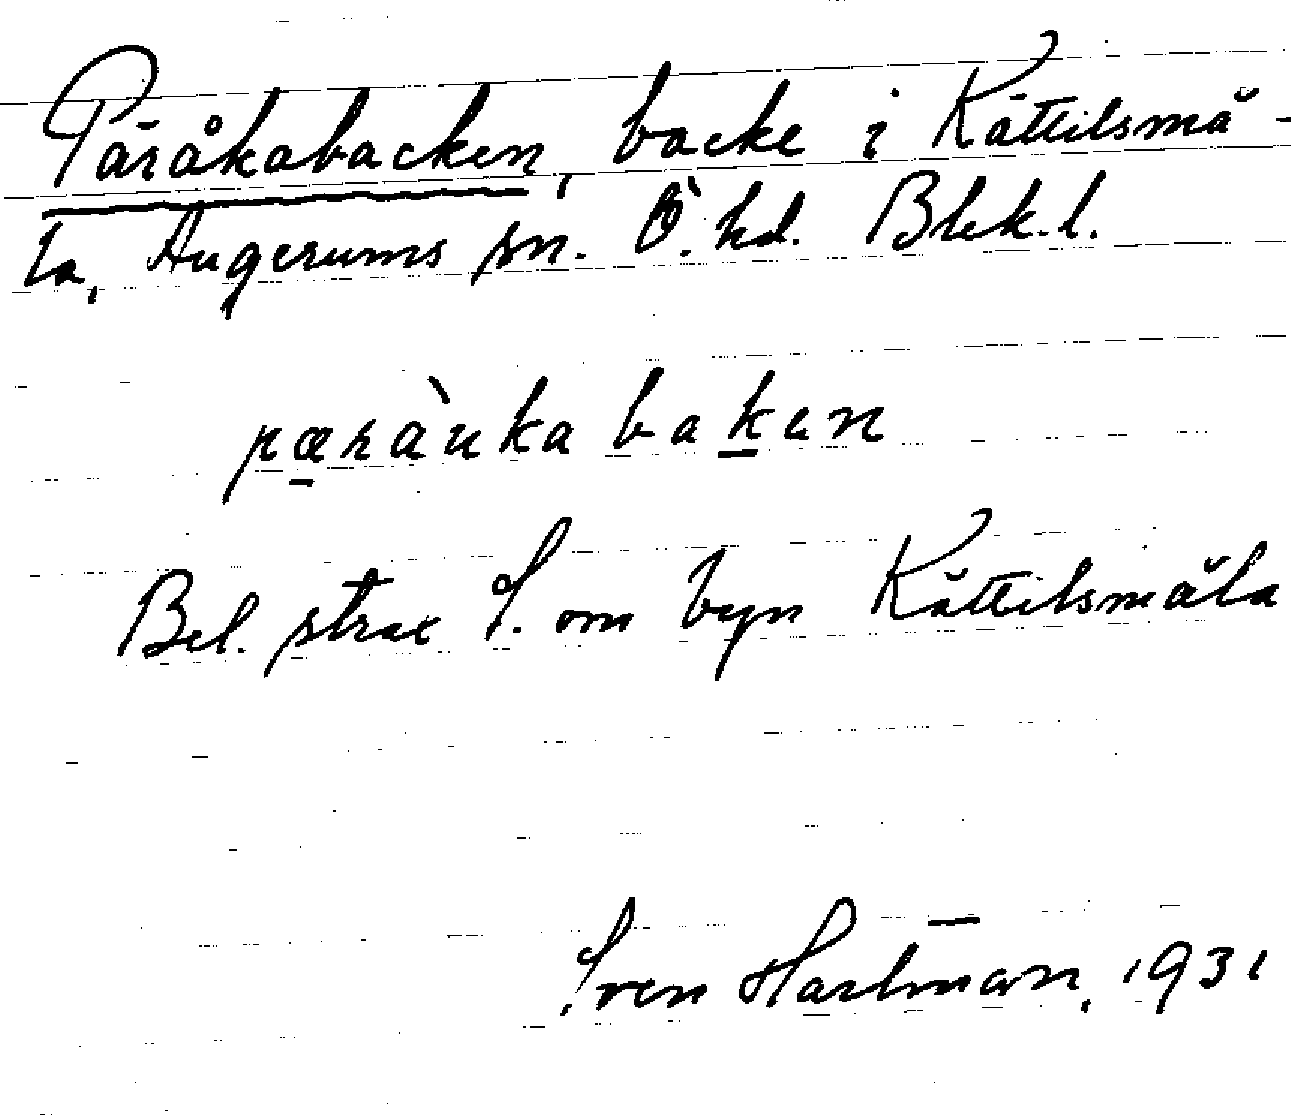 Päråkabacken, backe i Kättilsmå-
la, Augerums sn. Ö. hd. Blek.l.
pæràuka baken
Bel. strax S. om byn Kättilsmåla
Sven Hartman, 1931